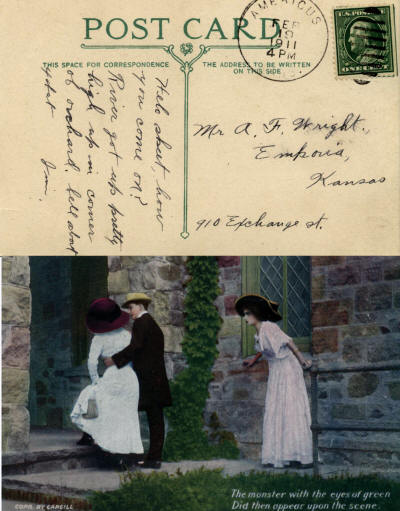 POST CARD
THIS SPACE FOR CORRESPONDENCE
THE ADDRESS TO BE WRITTEN
ON THIS SIDE
AMERICUS
FEB
1911
4 PM
U.S. POSTAGE
ONE CENT
Helo skeet, how
you come on?
River got up pretty
high up in corner
of orchard. tell about
Jim.
Mr A. F. Wright,
Emporia,
Kansas
910 Exchange st.
COPR. BY CARGILL
The monster with the eyes of green
Did then appear upon the scene.